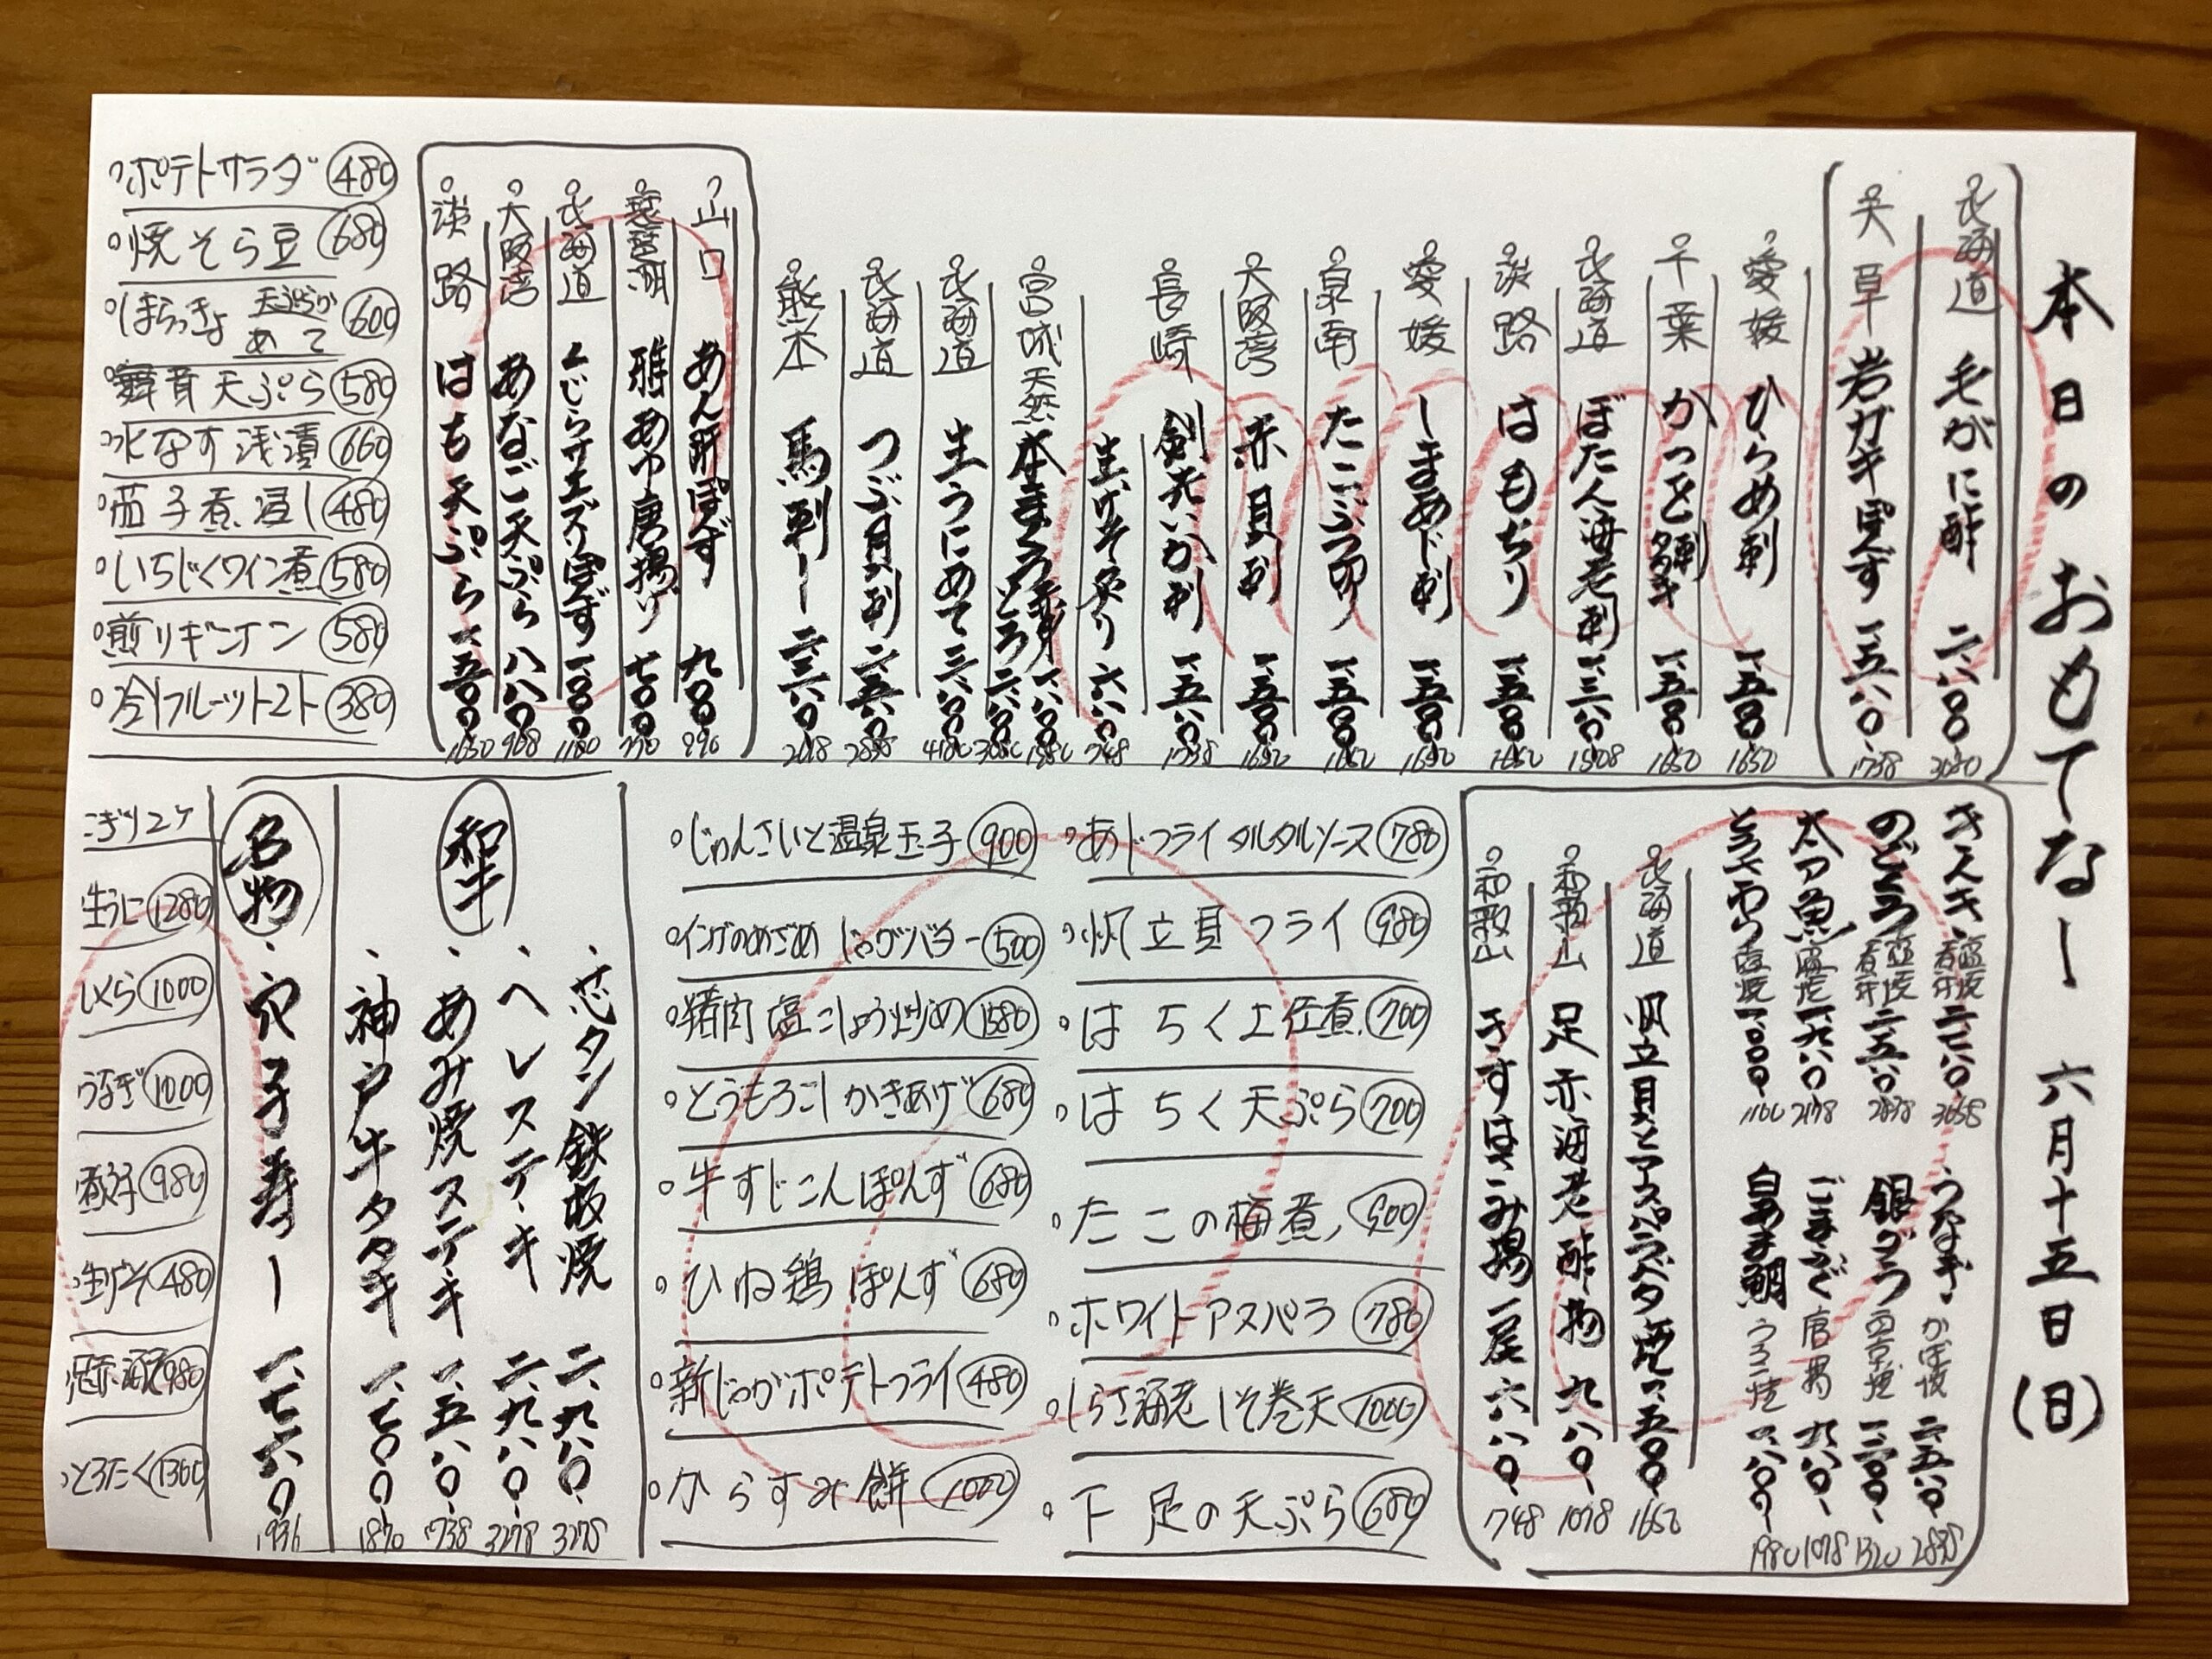 本日のおもてなし 六月十五日(日)
北海道 毛がに酢 二、八〇〇 3080
天草 岩ガキぽんず 一、五八〇 1738
愛媛 ひらめ刺 一、五〇〇 1650
千葉 かつを刺 タタキ 一、五〇〇 1650
北海道 ぼたん海老刺 一、三八〇 1508
淡路 はもちり 一、五〇〇 1650
愛媛 しまあじ刺 一、五〇〇 1650
泉南 たこぶつ切り 一、五〇〇 1650
大阪湾 赤貝刺 一、五〇〇 1650
長崎 剣先いか刺 一、五八〇 1738
生げそ炙り 六八〇 748
宮城 天然 本まぐろ 赤身 一、八〇〇 1980
とろ 二、八〇〇 3080
北海道 生うにめて 三、八〇〇 4180
北海道 つぶ貝刺 二、五八〇 2838
熊本 馬刺し 二、三八〇 2618
山口 あん肝ぽんず 九〇〇 990
琵琶湖 稚あゆ唐揚げ 七〇〇 770
北海道 くじらサエズリぽんず 一、八〇〇 1180
大阪湾 あなご天ぷら 八八〇 968
淡路 はも天ぷら 一、五〇〇 1650
ポテトサラダ 480
焼そら豆 680
しまらっきょ 天ぷらか めて 600
舞茸天ぷら 580
水なす浅漬 660
茄子煮浸し 480
いちじくワイン煮 580
煎りギンナン 580
冷しフルーツトマト 380
キンキ 塩焼 煮付 二、七八〇 3058
のどぐろ 塩焼 煮付 二、五八〇 2838
太刀魚 塩焼 一、九八〇 2178
塩焼 一、〇〇〇 1100
うなぎ かば焼 二、五八〇 2838
銀ダラ 西京焼 一、二〇〇 1320
ごまふぐ 唐揚 九八〇 1078
白あま鯛 うろこ焼 一、八〇〇 1980
北海道 帆立貝とアスパラバター焼 一、五〇〇 1650
和歌山 足赤海老酢の物 九八〇 1078
和歌山 きすはさみ揚 一尾 六八〇 748
あじフライタルタルソース 780
帆立貝フライ 980
はちく土佐煮 700
はちく天ぷら 700
たこの梅煮 900
ホワイトアスパラ 780
しらさ海老しそ巻天 1000
下足の天ぷら 680
じゅんさいと温泉玉子 900
インカのめざめ じゃがバター 500
猪肉塩こしょう炒め 1580
とうもろこしかきあげ 680
牛すじこんぽんず 680
ひね鶏ぽんず 680
新じゃがポテトフライ 480
からすみ餅 1000
和牛
芯タン鉄板焼 二、九八〇 3278
ヘレステーキ 二、九八〇 3278
あみ焼ステーキ 一、五八〇 1738
神戸牛タタキ 一、七〇〇 1870
名物
穴子寿し 一、七六〇 1936
にぎり2ケ
生うに 1280
いくら 1000
うなぎ 1000
煮穴子 980
生げそ 480
足赤海老 980
とろたく 1360